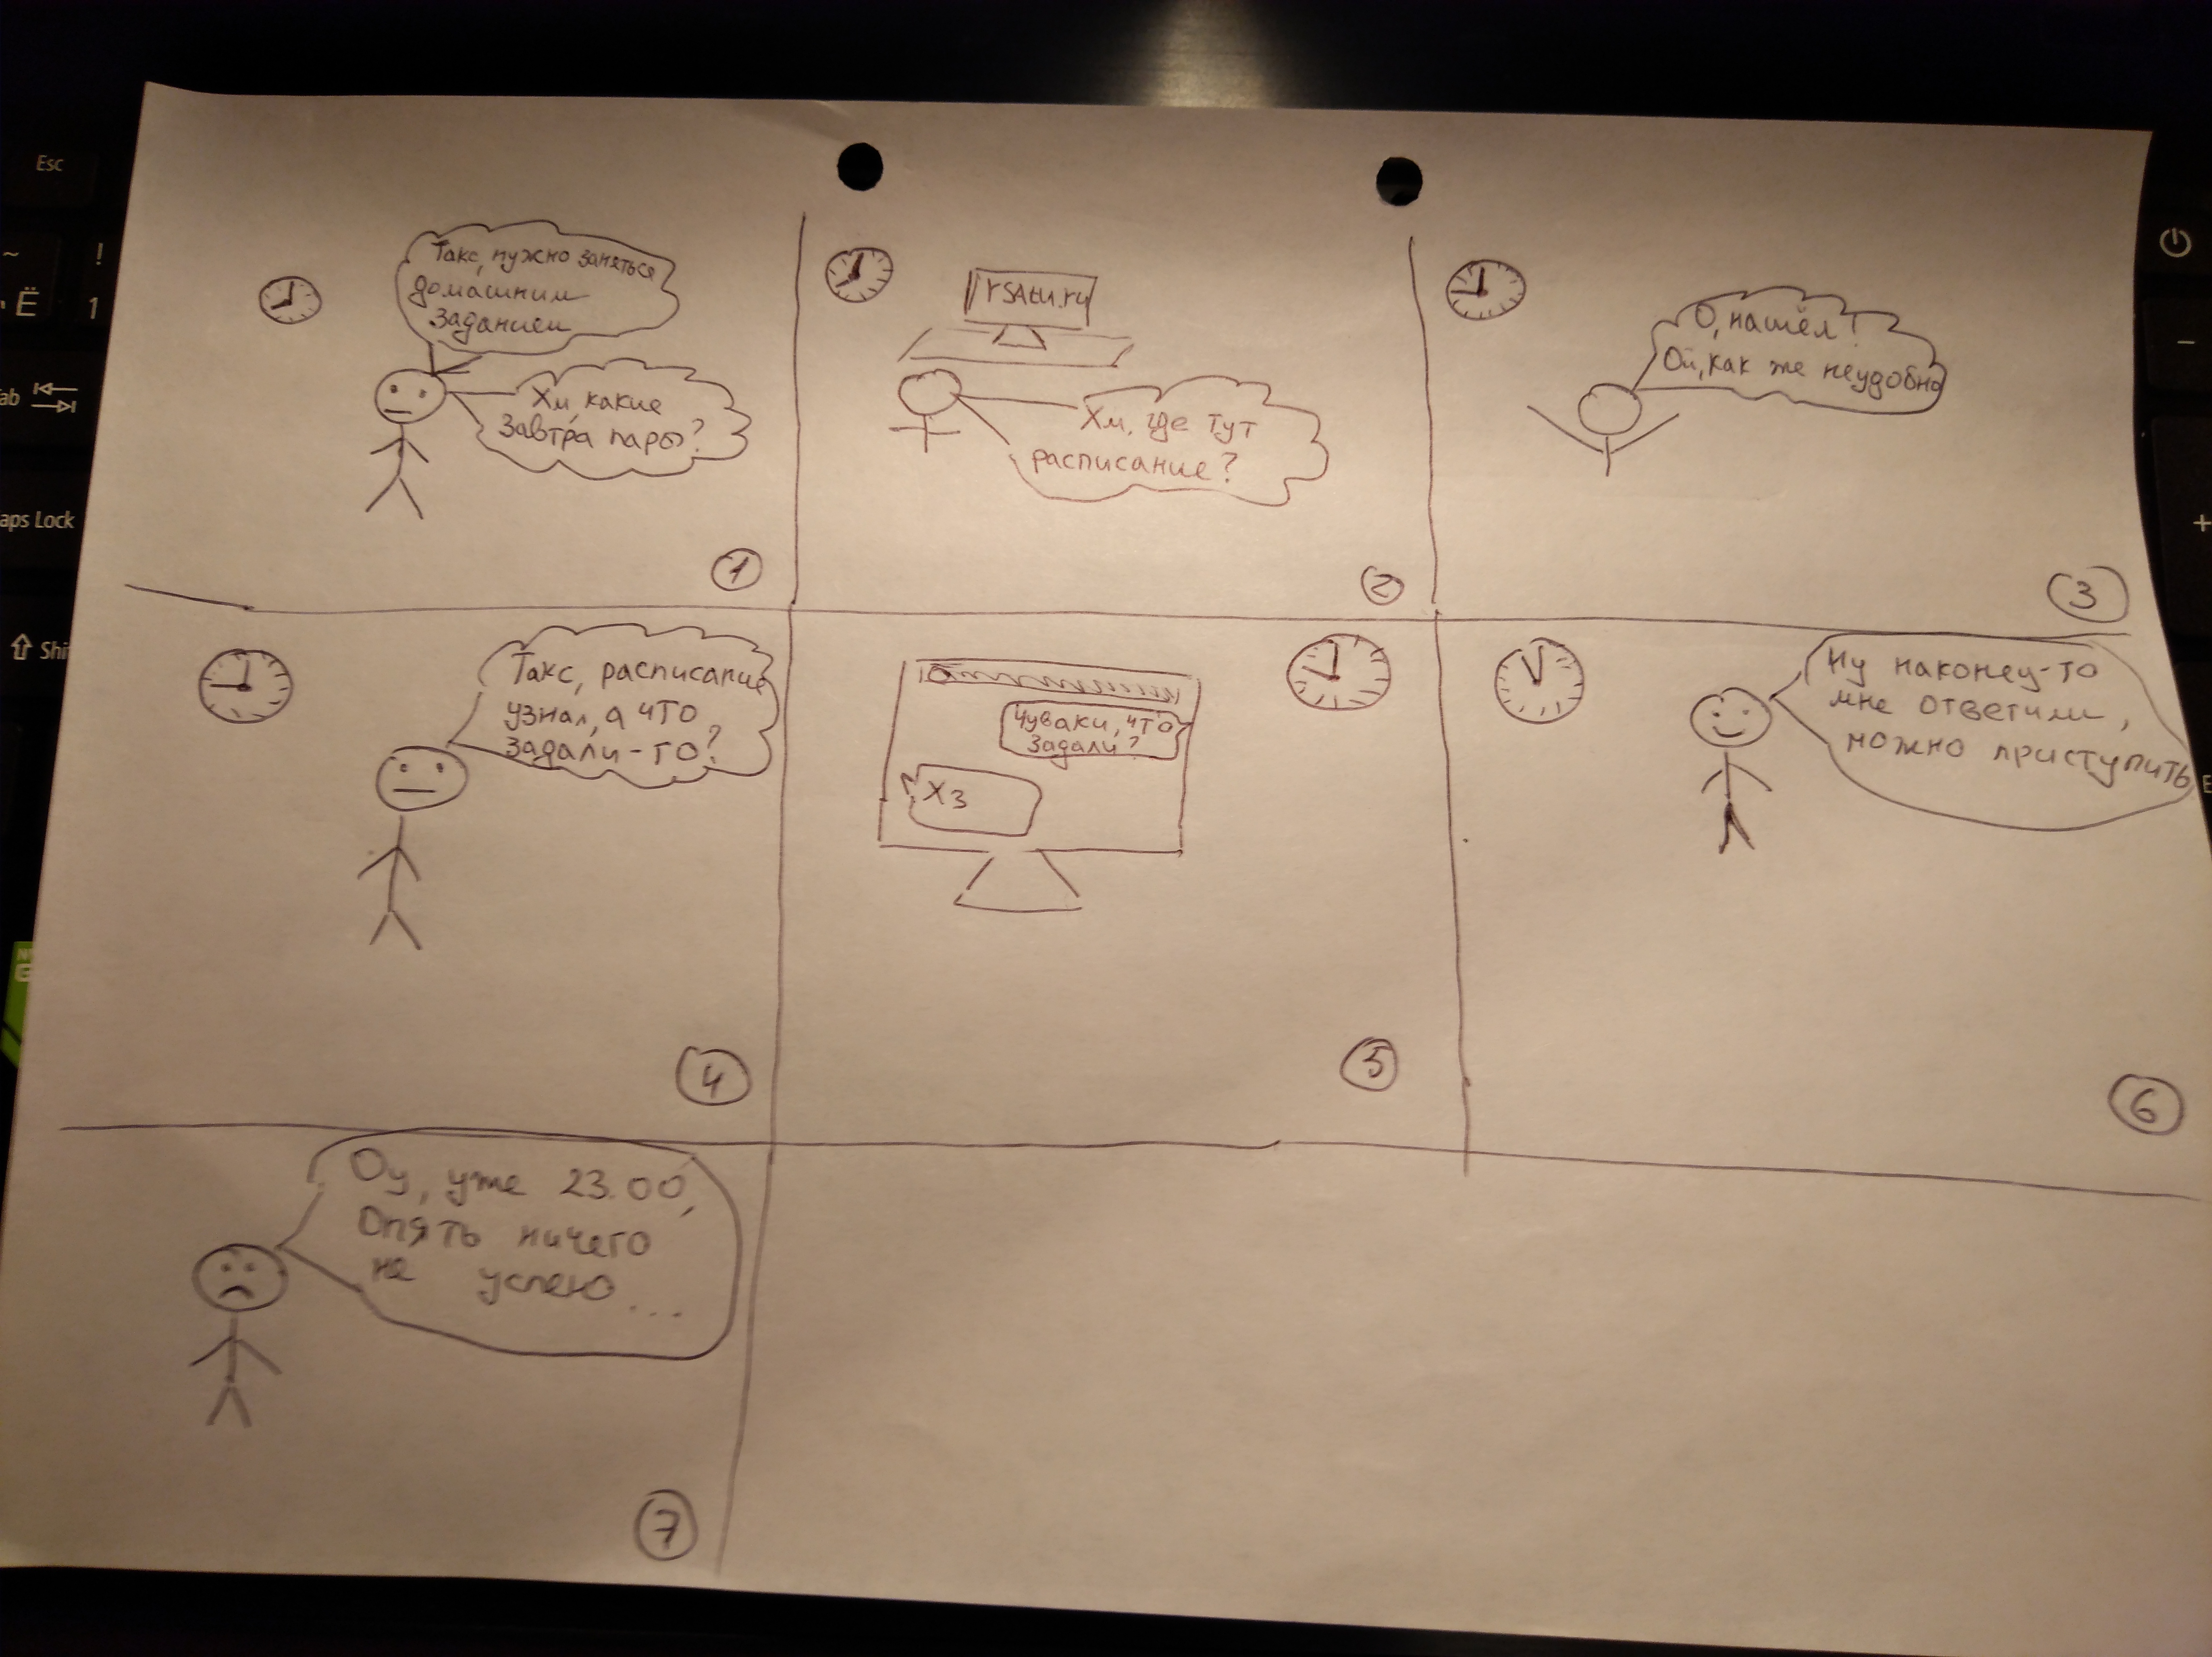 Такс, нужно заняться
домашним
заданием
Хм, какие
завтра пары?
1
rsatu.ru
Хм, где тут
расписание?
2
О, нашёл!
Ой, как же неудобно
3
Такс, расписание
узнал, а что
задали-то?
4
Чуваки, что
задали?
Хз
5
Ну наконец-то
мне ответили,
можно приступить
6
Оу, уже 23.00,
Опять ничего
не успею...
7
Esc
~
!
Ё
1
ab
aps Lock
Shi
-
+